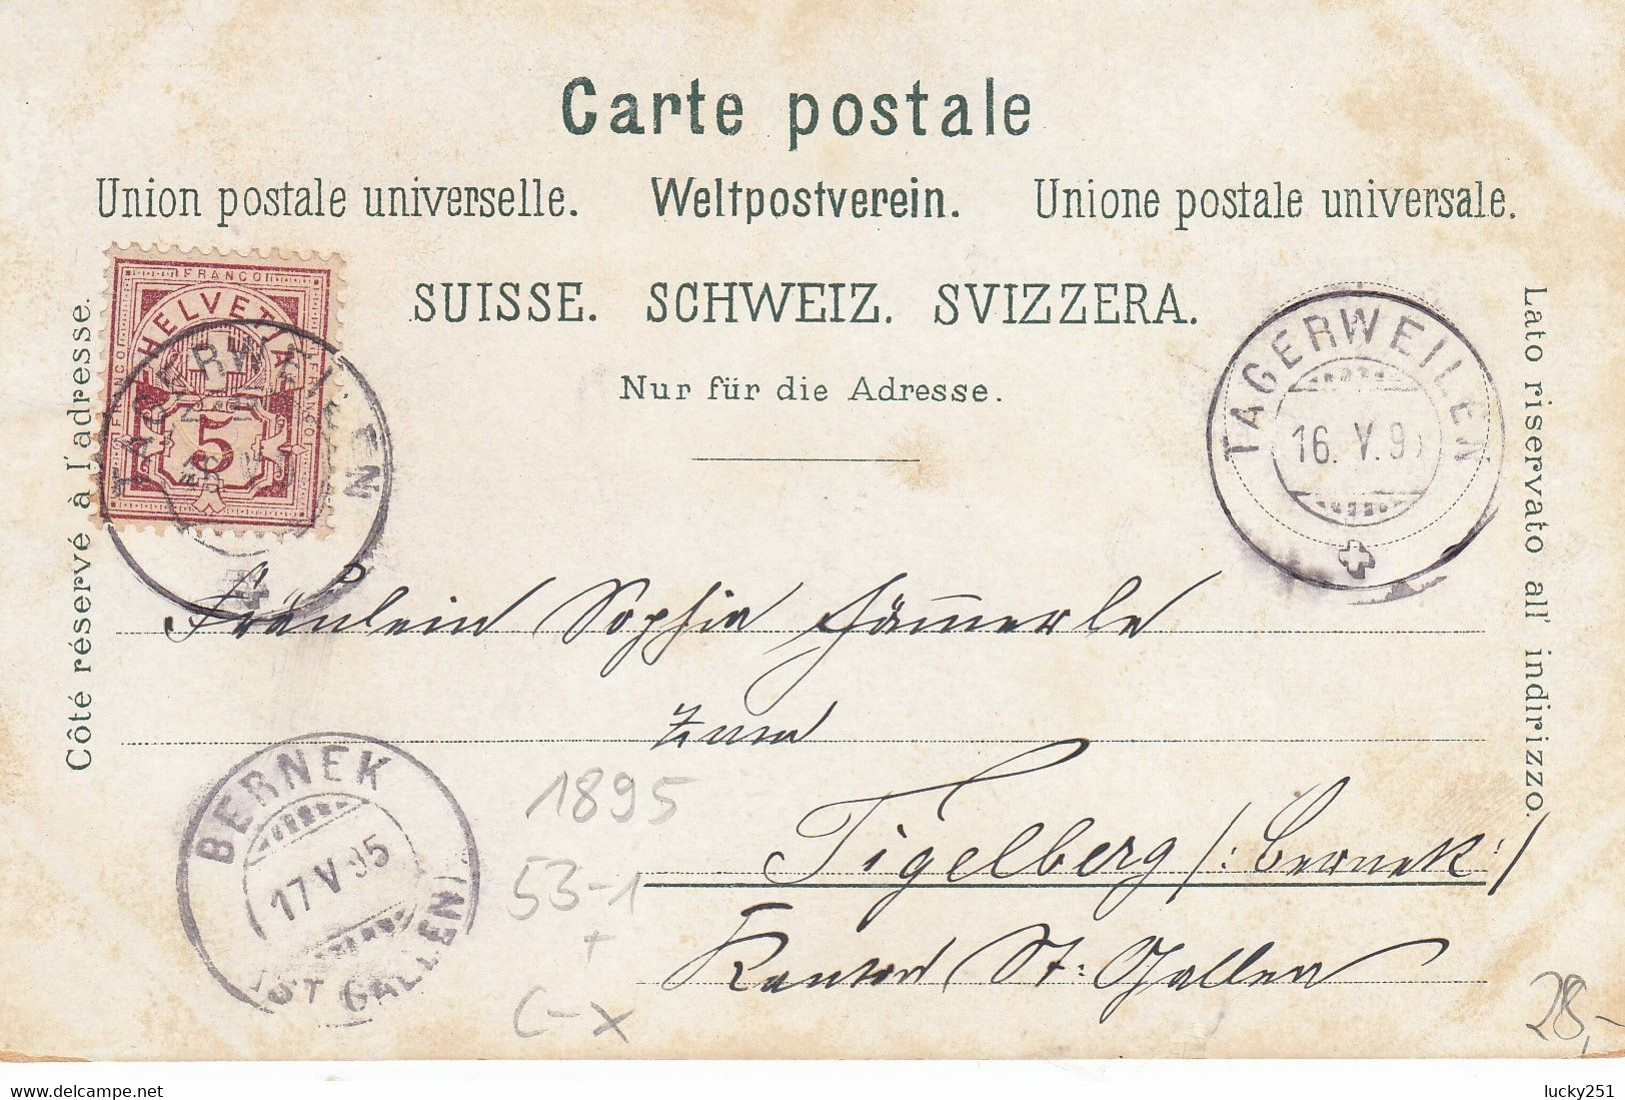 Carte postale
Union postale universelle. Weltpostverein. Unione postale universale.
SUISSE. SCHWEIZ. SVIZZERA.
Nur für die Adresse.
Côté réservé à l'adresse.
Lato riservato all' indirizzo.
FRANCO
HELVETIA
FRANCO
FRANCO
5
TAGERWEILEN
TAGERWEILEN
16. V. 9
Fräulein Sophie Hämmerle
zum
Tigelberg /: Bernek :/
Kanton St: Gallen
BERNEK
17 V 95
(ST GALLEN)
1895
53-1
+
C-X
28,-
lucky251